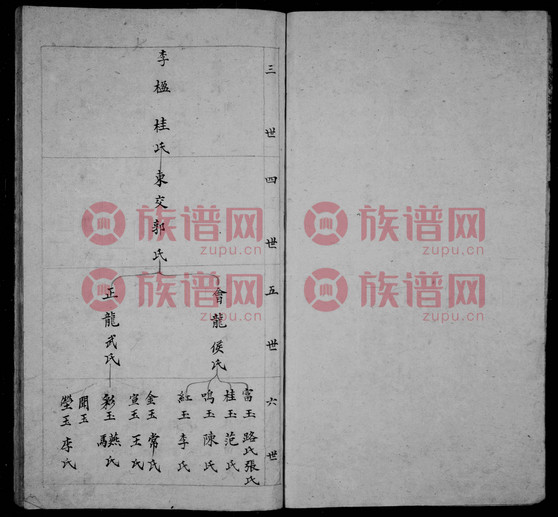 三世
四世
五世
六世
李楹
桂氏
東交郭氏
會龍侯氏
正龍武氏
富玉路氏張氏
桂玉范氏
鳴玉陳氏
紅玉李氏
金玉常氏
宣玉王氏
彩玉
燕氏
閏玉
瑩玉李氏
族谱网
zupu.cn
族谱网
zupu.cn
族谱网
zupu.cn
族谱网
zupu.cn